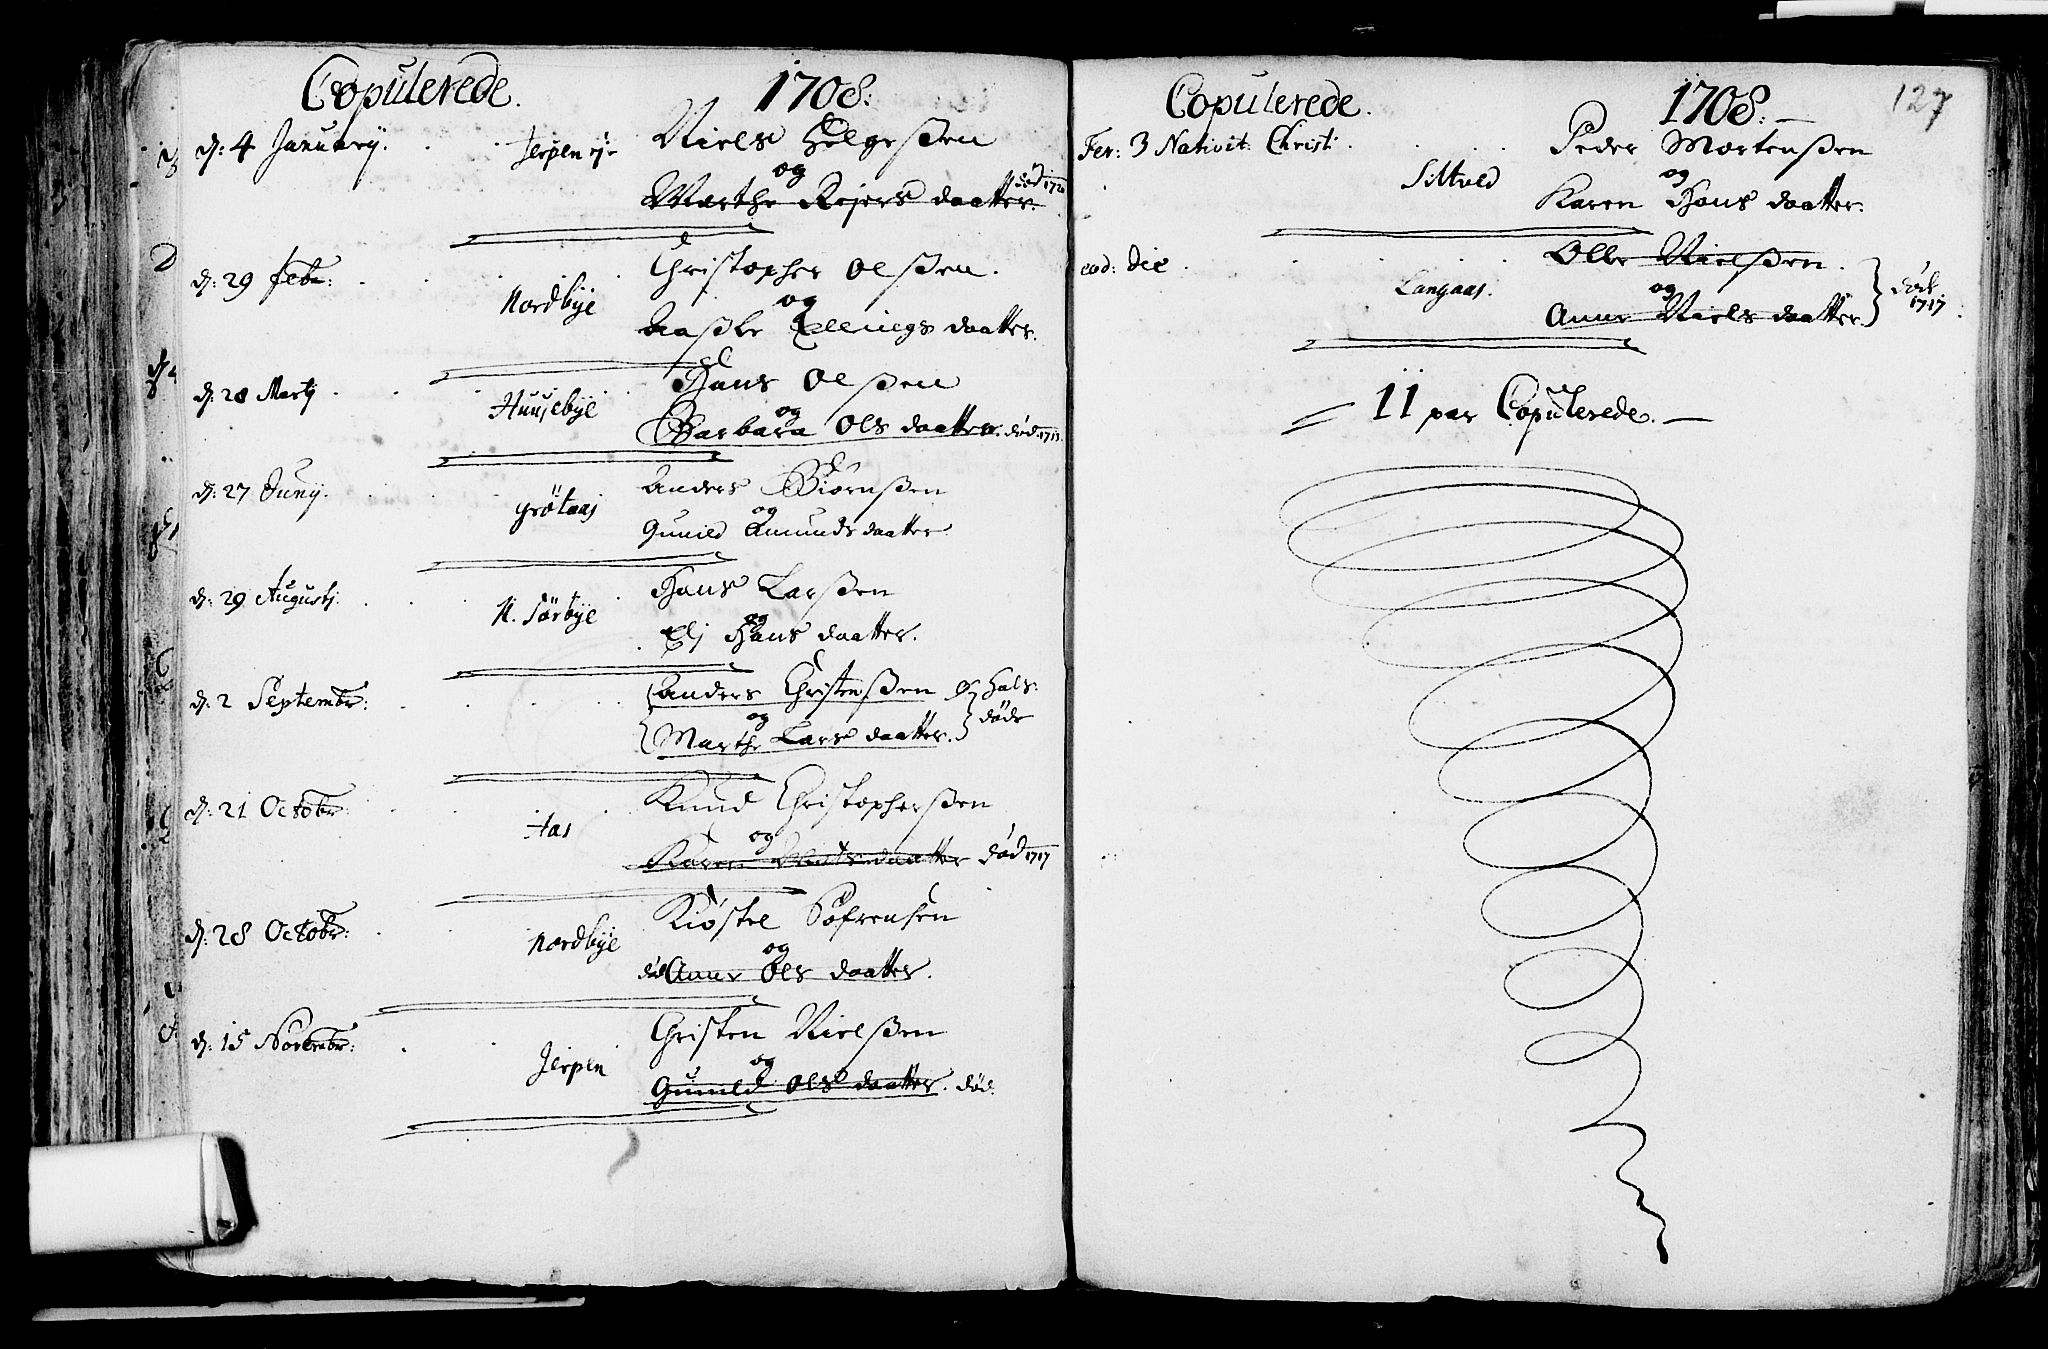 Copulerede. 1708:
d: 4 January. Jerpen Niels Helgesßen
og
Marthe Rejers daatter. død 1720
d: 29 febr: Nordbye Christopher Olsßen.
og
Aaste Ellings daatter.
d: 28 Martj Huusebye Hans Olsßen
og
Barbara Ols daatter. død 1713
d: 27 Junij. grötaas Anders Biörnsßen
og
Gunild Amunds daatter
d: 29 Augustj. N. Sörbye Hans Larsßen
og
Elj Hans daatter.
d: 2 Septembr: Anders Christensßen
og døde
Marthe Lars daatter.
d: 21 Octobr: Aas Knud Christophersßen
og
Karen daatter død 1717
d: 28 Octobr: Nordbye Kiöstel Söfrensen
og
død Anne Ols daatter.
d: 15 Novembr: Jerpen Christen Nielsßen
og
Gunild Ols daatter. död.
Copulerede. 1708. 127
Fer: 3 Nativit: Christi. Siltvld Peder Mortensßen
og
Karen Hans daatter.
eod: die. Langaas. Olle Nielsßen.
og døde 1717
Anne Niels daatter.
11 par Copulerede.